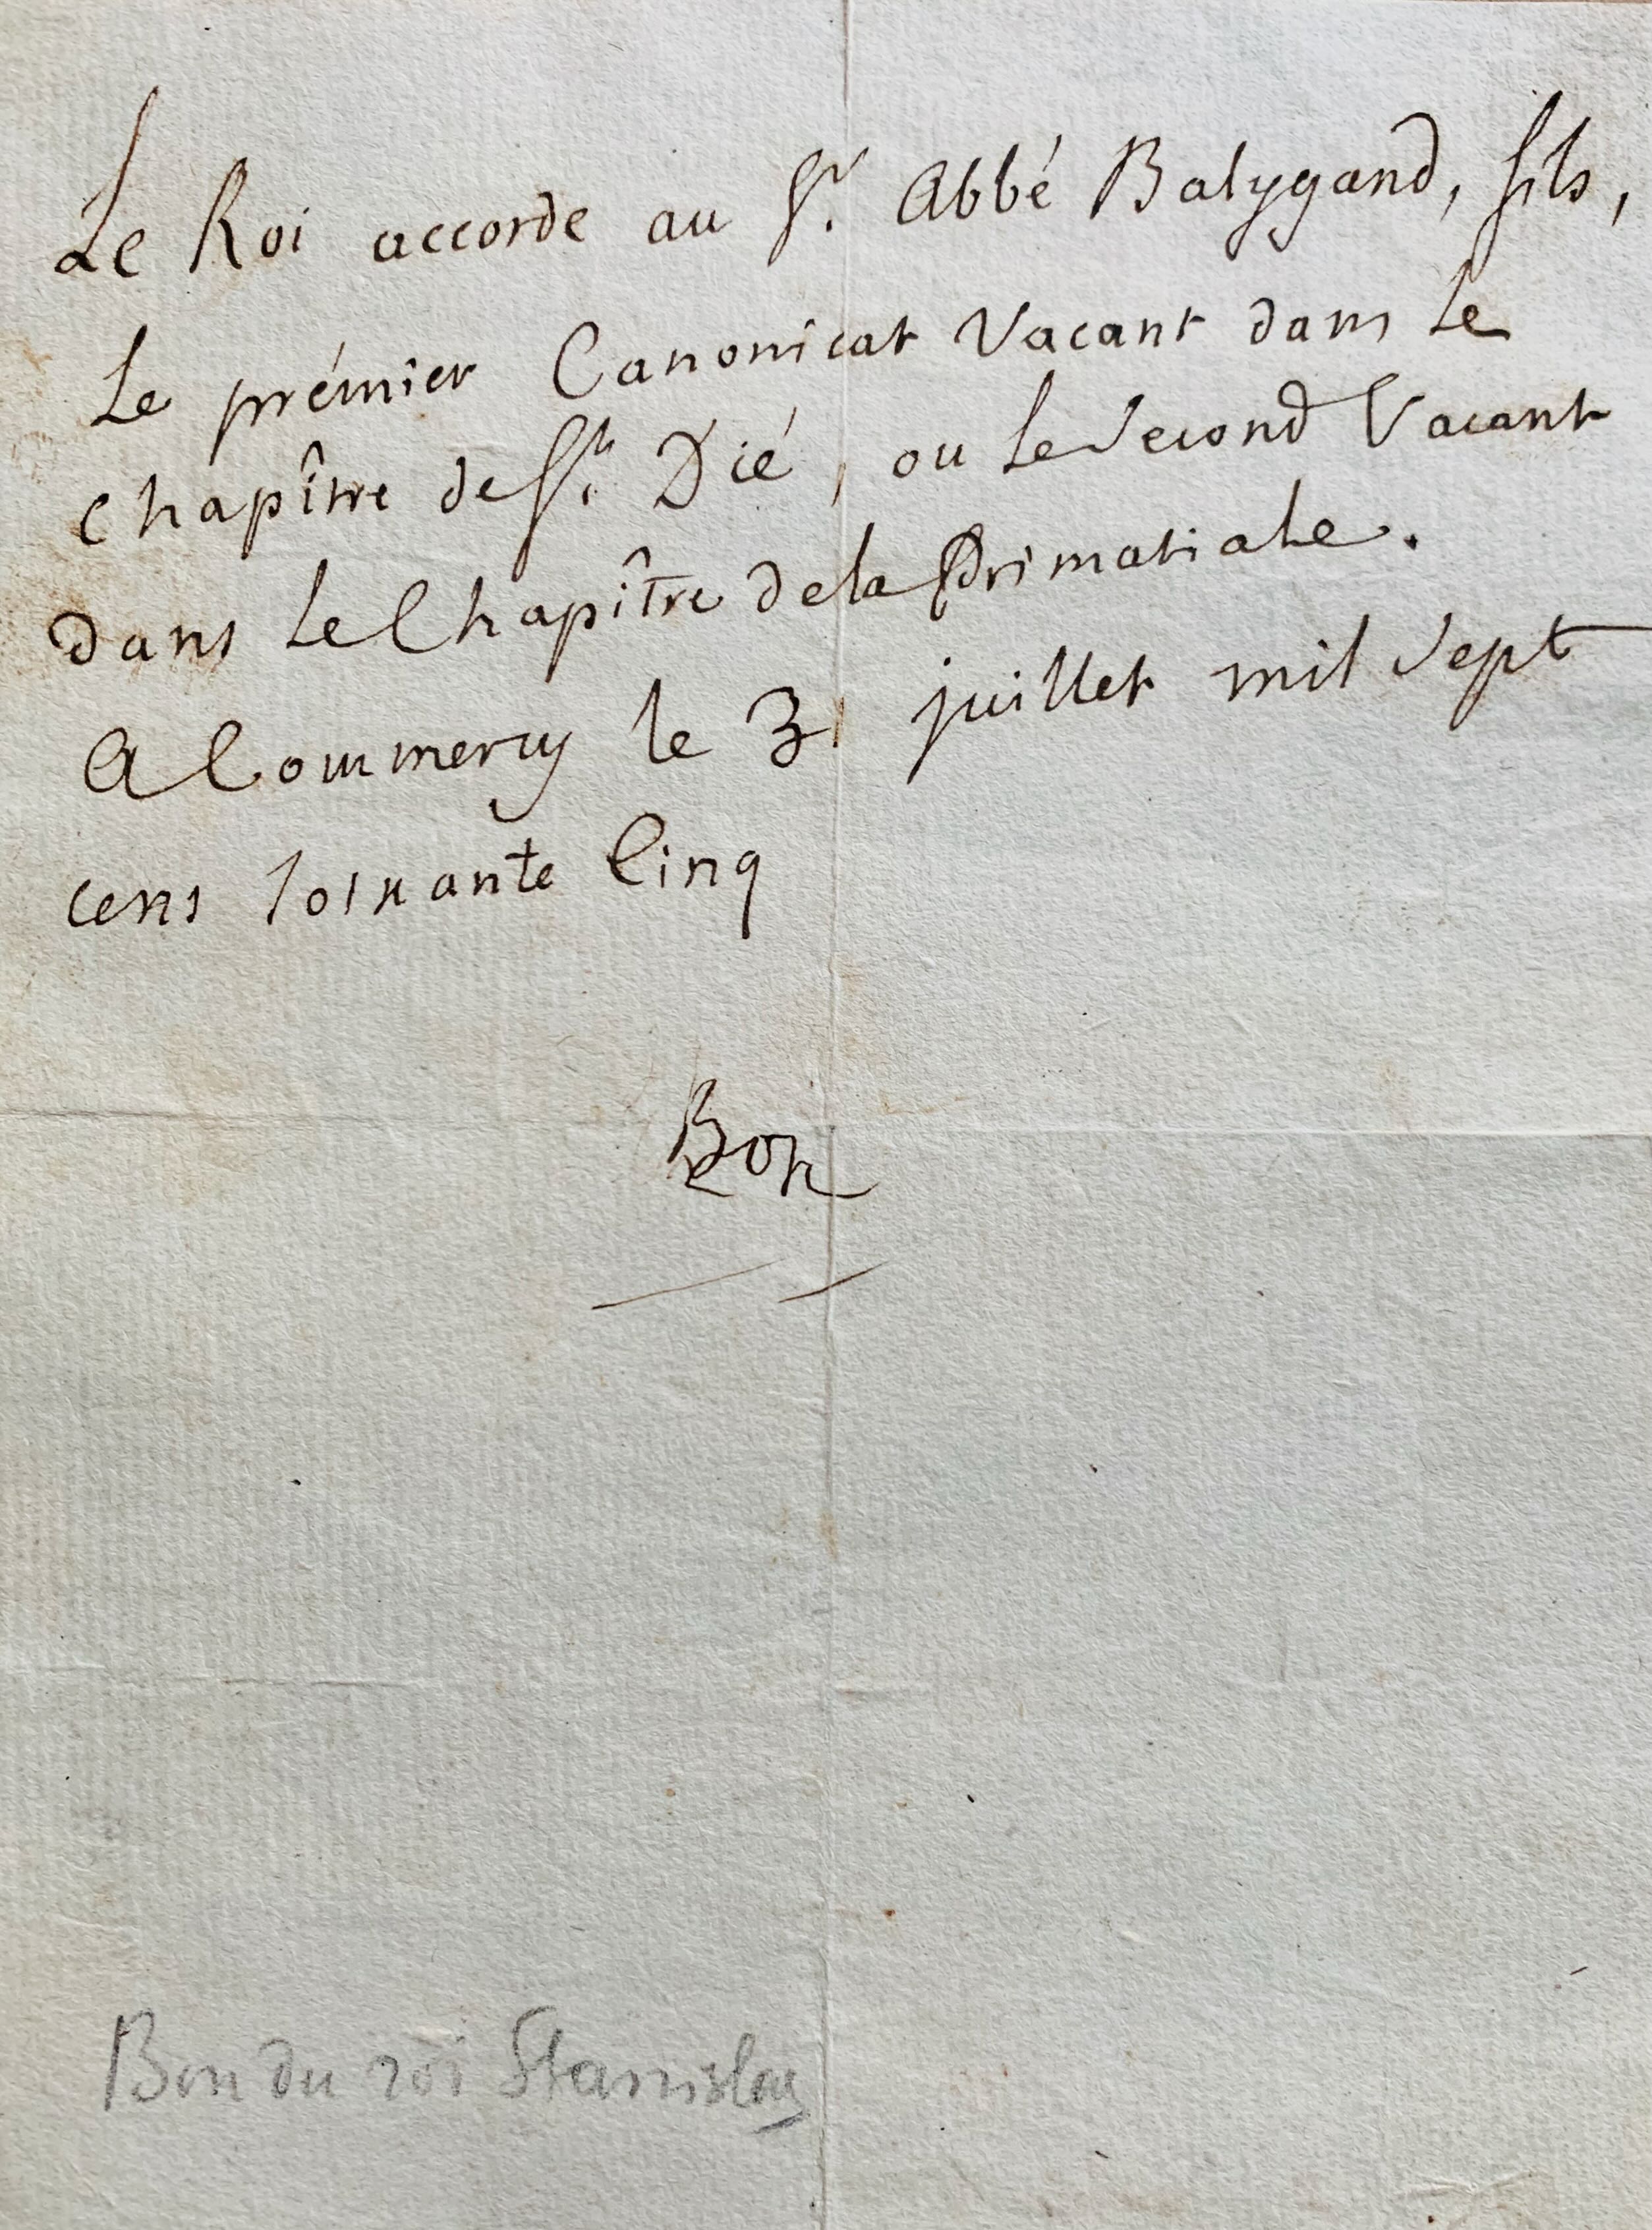 Le Roi accorde au Sr. Abbé Balygand, fils,
Le prémier Canonicat Vacant dans Le
Chapître de St. Dié, ou Le Second Vacant
dans Le Chapître de la Primatiale.
A Commercy le 31 juillet mil Sept
cens soixante Cinq
Bon
Bon du roi Stanislas